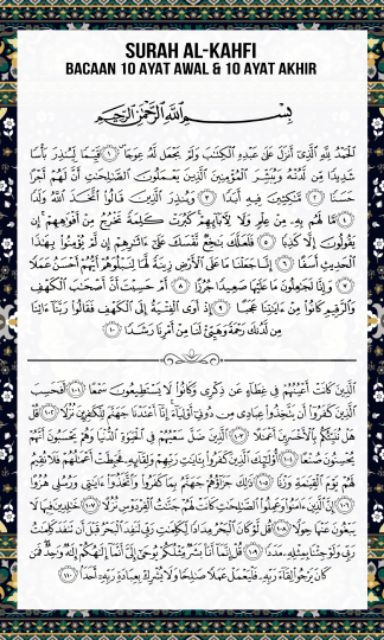 SURAH AL-KAHFI
BACAAN 10 AYAT AWAL & 10 AYAT AKHIR
بِسْمِ اللَّهِ الرَّحْمَٰنِ الرَّحِيمِ
الْحَمْدُ لِلَّهِ الَّذِي أَنْزَلَ عَلَىٰ عَبْدِهِ الْكِتَابَ وَلَمْ يَجْعَلْ لَهُ عِوَجًا ۜ ١ قَيِّمًا لِيُنْذِرَ بَأْسًا
شَدِيدًا مِنْ لَدُنْهُ وَيُبَشِّرَ الْمُؤْمِنِينَ الَّذِينَ يَعْمَلُونَ الصَّالِحَاتِ أَنَّ لَهُمْ أَجْرًا
حَسَنًا ٢ مَاكِثِينَ فِيهِ أَبَدًا ٣ وَيُنْذِرَ الَّذِينَ قَالُوا اتَّخَذَ اللَّهُ وَلَدًا
٤ مَا لَهُمْ بِهِ مِنْ عِلْمٍ وَلَا لِآبَائِهِمْ ۚ كَبُرَتْ كَلِمَةً تَخْرُجُ مِنْ أَفْوَاهِهِمْ ۚ إِنْ
يَقُولُونَ إِلَّا كَذِبًا ٥ فَلَعَلَّكَ بَاخِعٌ نَفْسَكَ عَلَىٰ آثَارِهِمْ إِنْ لَمْ يُؤْمِنُوا بِهَٰذَا
الْحَدِيثِ أَسَفًا ٦ إِنَّا جَعَلْنَا مَا عَلَى الْأَرْضِ زِينَةً لَهَا لِنَبْلُوَهُمْ أَيُّهُمْ أَحْسَنُ عَمَلًا
٧ وَإِنَّا لَجَاعِلُونَ مَا عَلَيْهَا صَعِيدًا جُرُزًا ٨ أَمْ حَسِبْتَ أَنَّ أَصْحَابَ الْكَهْفِ
وَالرَّقِيمِ كَانُوا مِنْ آيَاتِنَا عَجَبًا ٩ إِذْ أَوَى الْفِتْيَةُ إِلَى الْكَهْفِ فَقَالُوا رَبَّنَا آتِنَا
مِنْ لَدُنْكَ رَحْمَةً وَهَيِّئْ لَنَا مِنْ أَمْرِنَا رَشَدًا ١٠
الَّذِينَ كَانَتْ أَعْيُنُهُمْ فِي غِطَاءٍ عَنْ ذِكْرِي وَكَانُوا لَا يَسْتَطِيعُونَ سَمْعًا ١٠١ أَفَحَسِبَ
الَّذِينَ كَفَرُوا أَنْ يَتَّخِذُوا عِبَادِي مِنْ دُونِي أَوْلِيَاءَ ۚ إِنَّا أَعْتَدْنَا جَهَنَّمَ لِلْكَافِرِينَ نُزُلًا ١٠٢ قُلْ
هَلْ نُنَبِّئُكُمْ بِالْأَخْسَرِينَ أَعْمَالًا ١٠٣ الَّذِينَ ضَلَّ سَعْيُهُمْ فِي الْحَيَاةِ الدُّنْيَا وَهُمْ يَحْسَبُونَ أَنَّهُمْ
يُحْسِنُونَ صُنْعًا ١٠٤ أُولَٰئِكَ الَّذِينَ كَفَرُوا بِآيَاتِ رَبِّهِمْ وَلِقَائِهِ فَحَبِطَتْ أَعْمَالُهُمْ فَلَا نُقِيمُ
لَهُمْ يَوْمَ الْقِيَامَةِ وَزْنًا ١٠٥ ذَٰلِكَ جَزَاؤُهُمْ جَهَنَّمُ بِمَا كَفَرُوا وَاتَّخَذُوا آيَاتِي وَرُسُلِي هُزُوًا
١٠٦ إِنَّ الَّذِينَ آمَنُوا وَعَمِلُوا الصَّالِحَاتِ كَانَتْ لَهُمْ جَنَّاتُ الْفِرْدَوْسِ نُزُلًا ١٠٧ خَالِدِينَ فِيهَا لَا
يَبْغُونَ عَنْهَا حِوَلًا ١٠٨ قُلْ لَوْ كَانَ الْبَحْرُ مِدَادًا لِكَلِمَاتِ رَبِّي لَنَفِدَ الْبَحْرُ قَبْلَ أَنْ تَنْفَدَ كَلِمَاتُ
رَبِّي وَلَوْ جِئْنَا بِمِثْلِهِ مَدَدًا ١٠٩ قُلْ إِنَّمَا أَنَا بَشَرٌ مِثْلُكُمْ يُوحَىٰ إِلَيَّ أَنَّمَا إِلَٰهُكُمْ إِلَٰهٌ وَاحِدٌ ۖ فَمَنْ
كَانَ يَرْجُو لِقَاءَ رَبِّهِ فَلْيَعْمَلْ عَمَلًا صَالِحًا وَلَا يُشْرِكْ بِعِبَادَةِ رَبِّهِ أَحَدًا ١١٠